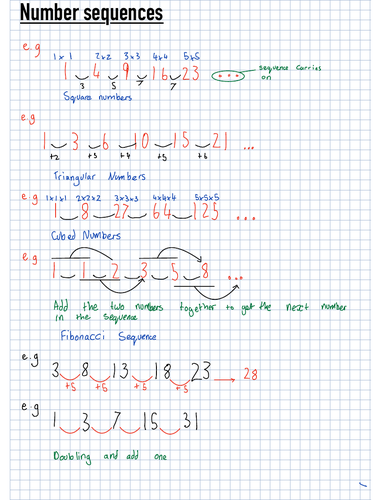 Number sequences
e.g 1x1 2x2 3x3 4x4 5x5
1 4 9 16 23 ... sequence carries on
3 5 7 7
Square numbers
e.g
1 3 6 10 15 21 ...
+2 +3 +4 +5 +6
Triangular Numbers
e.g 1x1x1 2x2x2 3x3x3 4x4x4 5x5x5
1 8 27 64 125 ...
Cubed Numbers
e.g
1 1 2 3 5 8 ...
Add the two numbers together to get the next number
in the sequence
Fibonacci Sequence
e.g
3 8 13 18 23 → 28
+5 +5 +5 +5
e.g
1 3 7 15 31
Doubling and add one